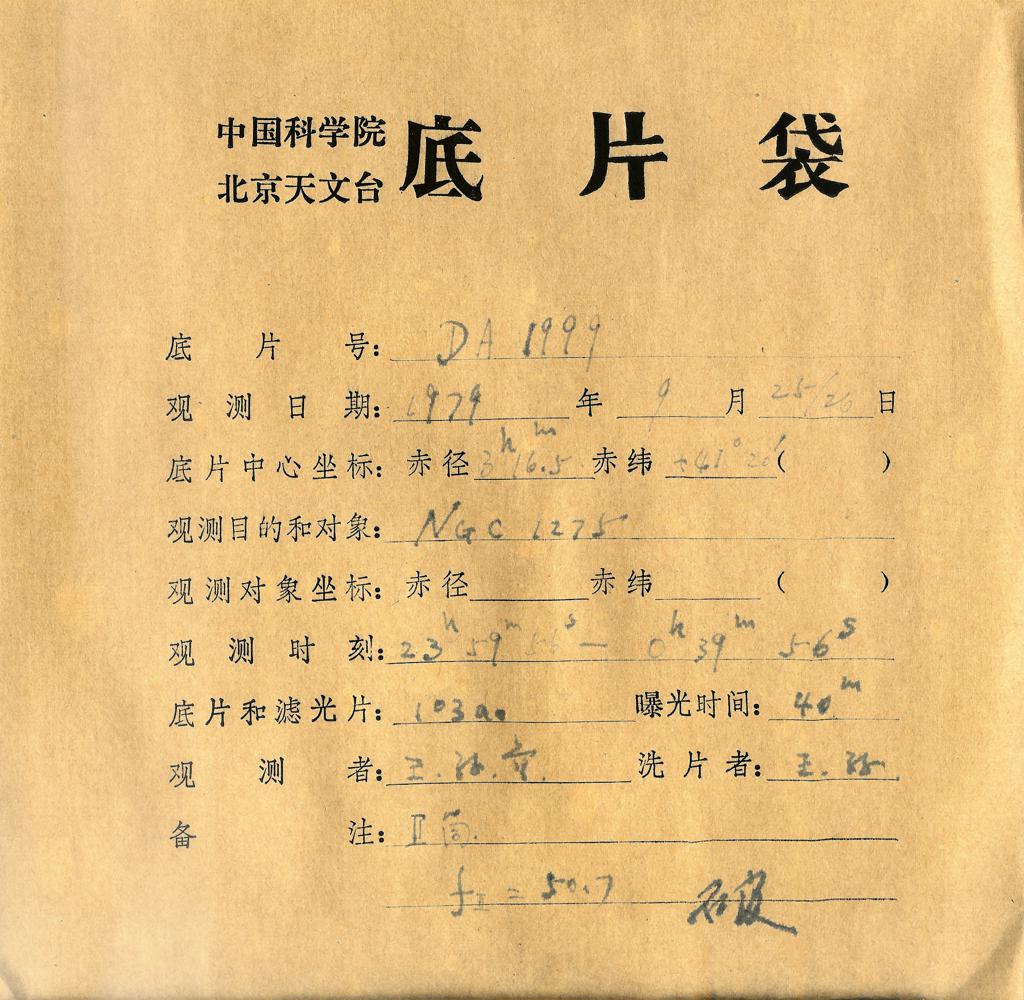 中国科学院
北京天文台
底片袋
底片号: DA 1999
观测日期: 1979 年 9 月 25/26 日
底片中心坐标: 赤径 3h 16.m5 赤纬 +41° 20′ ( )
观测目的和对象: NGC 1275
观测对象坐标: 赤径 赤纬 ( )
观测时刻: 23h 59m 56s — 0h 39m 56s
底片和滤光片: 103ao 曝光时间: 40m
观测者: 王. 孙. 洗片者: 王. 孙
备注: II 筒.
fII = 50.7